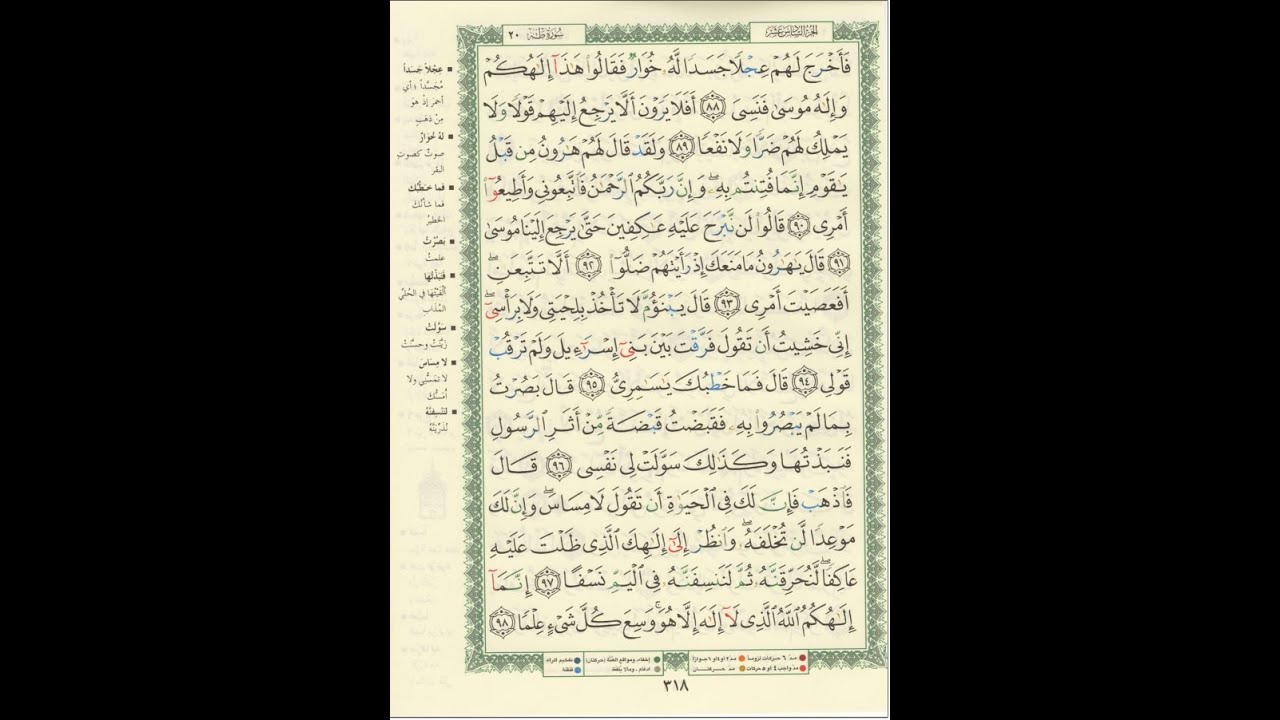 الجزء السادس عشر
سورة طه ٢٠
فَأَخْرَجَ لَهُمْ عِجْلًا جَسَدًا لَّهُۥ خُوَارٌ فَقَالُوا۟ هَٰذَآ إِلَٰهُكُمْ
وَإِلَٰهُ مُوسَىٰ فَنَسِىَ ٨٨ أَفَلَا يَرَوْنَ أَلَّا يَرْجِعُ إِلَيْهِمْ قَوْلًا وَلَا
يَمْلِكُ لَهُمْ ضَرًّا وَلَا نَفْعًا ٨٩ وَلَقَدْ قَالَ لَهُمْ هَٰرُونُ مِن قَبْلُ
يَٰقَوْمِ إِنَّمَا فُتِنتُم بِهِۦ ۖ وَإِنَّ رَبَّكُمُ ٱلرَّحْمَٰنُ فَٱتَّبِعُونِى وَأَطِيعُوٓا۟
أَمْرِى ٩٠ قَالُوا۟ لَن نَّبْرَحَ عَلَيْهِ عَٰكِفِينَ حَتَّىٰ يَرْجِعَ إِلَيْنَا مُوسَىٰ
٩١ قَالَ يَٰهَٰرُونُ مَا مَنَعَكَ إِذْ رَأَيْتَهُمْ ضَلُّوٓا۟ ٩٢ أَلَّا تَتَّبِعَنِ ۖ
أَفَعَصَيْتَ أَمْرِى ٩٣ قَالَ يَبْنَؤُمَّ لَا تَأْخُذْ بِلِحْيَتِى وَلَا بِرَأْسِىٓ ۖ
إِنِّى خَشِيتُ أَن تَقُولَ فَرَّقْتَ بَيْنَ بَنِىٓ إِسْرَٰٓءِيلَ وَلَمْ تَرْقُبْ
قَوْلِى ٩٤ قَالَ فَمَا خَطْبُكَ يَٰسَٰمِرِىُّ ٩٥ قَالَ بَصُرْتُ
بِمَا لَمْ يَبْصُرُوا۟ بِهِۦ فَقَبَضْتُ قَبْضَةً مِّنْ أَثَرِ ٱلرَّسُولِ
فَنَبَذْتُهَا وَكَذَٰلِكَ سَوَّلَتْ لِى نَفْسِى ٩٦ قَالَ
فَٱذْهَبْ فَإِنَّ لَكَ فِى ٱلْحَيَوٰةِ أَن تَقُولَ لَا مِسَاسَ ۖ وَإِنَّ لَكَ
مَوْعِدًا لَّن تُخْلَفَهُۥ ۖ وَٱنظُرْ إِلَىٰٓ إِلَٰهِكَ ٱلَّذِى ظَلْتَ عَلَيْهِ
عَاكِفًا ۖ لَّنُحَرِّقَنَّهُۥ ثُمَّ لَنَنسِفَنَّهُۥ فِى ٱلْيَمِّ نَسْفًا ٩٧ إِنَّمَآ
إِلَٰهُكُمُ ٱللَّهُ ٱلَّذِى لَآ إِلَٰهَ إِلَّا هُوَ ۚ وَسِعَ كُلَّ شَىْءٍ عِلْمًا ٩٨
عِجْلاً جَسَداً
مُجَسَّداً ؛ أي
أحمر إذ هو
مِنْ ذهَب
لهُ خُوَارٌ
صوتٌ كصوتِ
البقر
فما خطبُك
فما شأنُكَ
الخطيرُ
بَصُرْتُ
علمتُ
فَنَبَذْتُها
ألقيْتُها في الحُليّ
المُذاب
سَوّلتْ
زيَّنتْ وحسَّنتْ
لا مِسَاسَ
لا تمَسُّني ولا
أمسُّك
لنَنْسِفنّهُ
لنُذَرِّيَنَّهُ
مدّ ٦ حركات لزوماً
مدّ ٢ أو ٤ أو ٦ جوازاً
مدّ واجب ٤ أو ٥ حركات
مدّ حركتان
إخفاء، ومواقع الغُنَّة (حركتان)
ادغام، وما لا يُلفَظ
تفخيم الراء
قلقلة
٣١٨